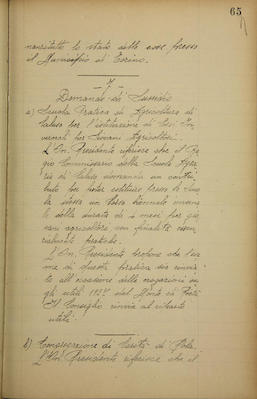 65
lo stato delle cose presso
il Municipio di Torino.
7
Domande di Sussidio
a) Scuola Pratica di Agricoltura di
per l'istituzione di Corsi In-
vernali per Giovani Agricoltori.
L'On. Presidente riferisce che il Re-
gio Commissario della Scuola Agra-
ria di domanda un contri-
buto per poter istituire presso la Scuo-
la stessa un Corso biennale inverna-
le della durata di 4 mesi per gio-
vani agricoltori con finalità essen-
zialmente pratiche.
L'On. Presidente propone che l'esa-
me di questa pratica sia rinvia-
to all'occasione delle erogazioni su-
gli utili 1925 del Monte di Pietà
Il Consiglio rinvia al riparto
utili.
b) Congregazione di Carità di Pola.
L'On. Presidente riferisce che il